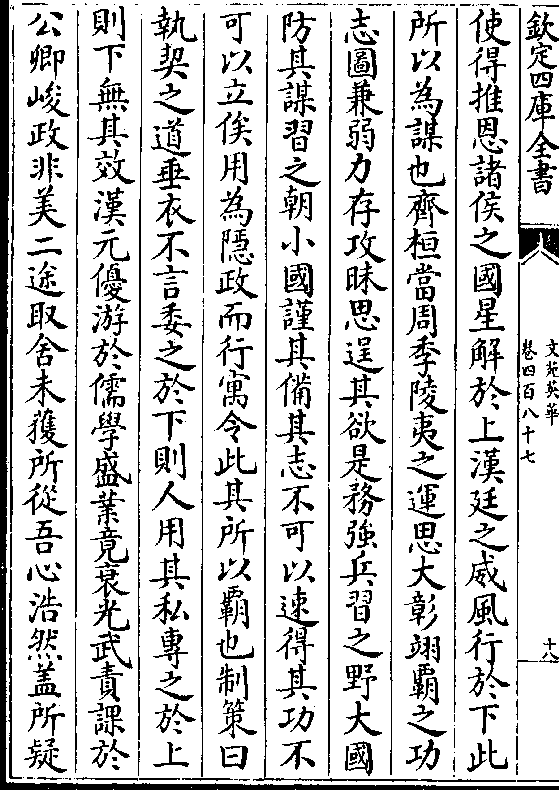 欽定四庫全書
文苑英華
卷四百八十七
十八
使得推恩諸侯之國星解於上漢廷之威風行於下此
所以為謀也齊桓當周季陵夷之運思大彰翊霸之功
志圖兼弱力存攻昧思逞其欲是務強兵習之野大國
防其謀習之朝小國謹其備其志不可以速得其功不
可以立俟用為隱政而行寓令此其所以霸也制策曰
執契之道垂衣不言委之於下則人用其私專之於上
則下無其效漢元優游於儒學盛業竟衰光武責課於
公卿峻政非美二途取舍未獲所從吾心浩然蓋所疑